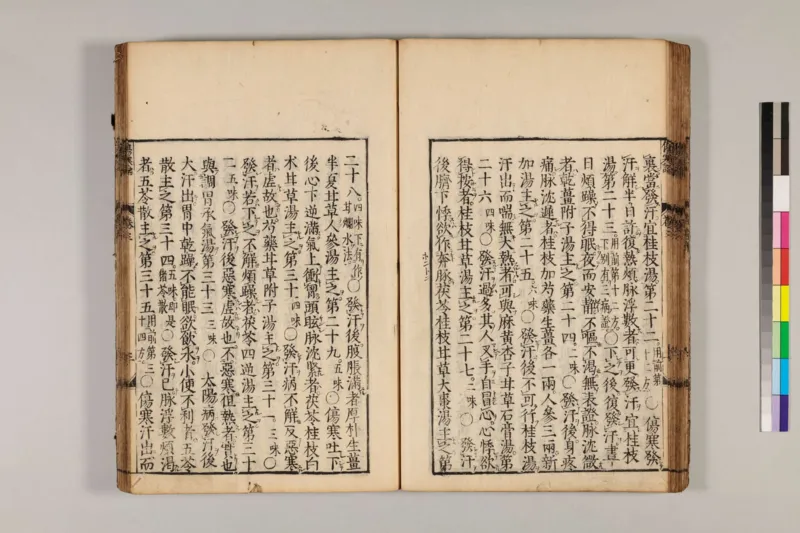 裏當發汗宜桂枝湯第二十二用前第十二方○傷寒發
汗解半日許復熱煩脉浮數者可更發汗宜桂枝
湯第二十三用前第十二方○下之後復發汗晝
日煩躁不得眠夜而安靜不嘔不渴無表證脉沈微
者乾薑附子湯主之第二十四三味○發汗後身疼
痛脉沈遲者桂枝加芍藥生薑各一兩人參三兩新
加湯主之第二十五六味○發汗後不可行桂枝湯
汗出而喘無大熱者可與麻黄杏子甘草石膏湯第
二十六四味○發汗過多其人叉手自冒心心悸欲
得按者桂枝甘草湯主之第二十七二味○發汗
後臍下悸欲作奔豚茯苓桂枝甘草大棗湯主之第
二十八四味下有作甘爛水法○發汗後腹脹滿者厚朴生薑
半夏甘草人參湯主之第二十九五味○傷寒吐下
後心下逆滿氣上衝胸頭眩脉沈緊者茯苓桂枝白
朮甘草湯主之第三十四味○發汗病不解反惡寒
者虛故也芍藥甘草附子湯主之第三十一三味○
發汗若下之不解煩躁者茯苓四逆湯主之第三十
二五味○發汗後惡寒虛故也不惡寒但熱者實也
與調胃承氣湯第三十三三味○太陽病發汗後
大汗出胃中乾躁不能眠欲飲水小便不利者五苓
散主之第三十四五味即猪苓散是○發汗已脉浮數煩渴
者五苓散主之第三十五用前第三十四方○傷寒汗出而